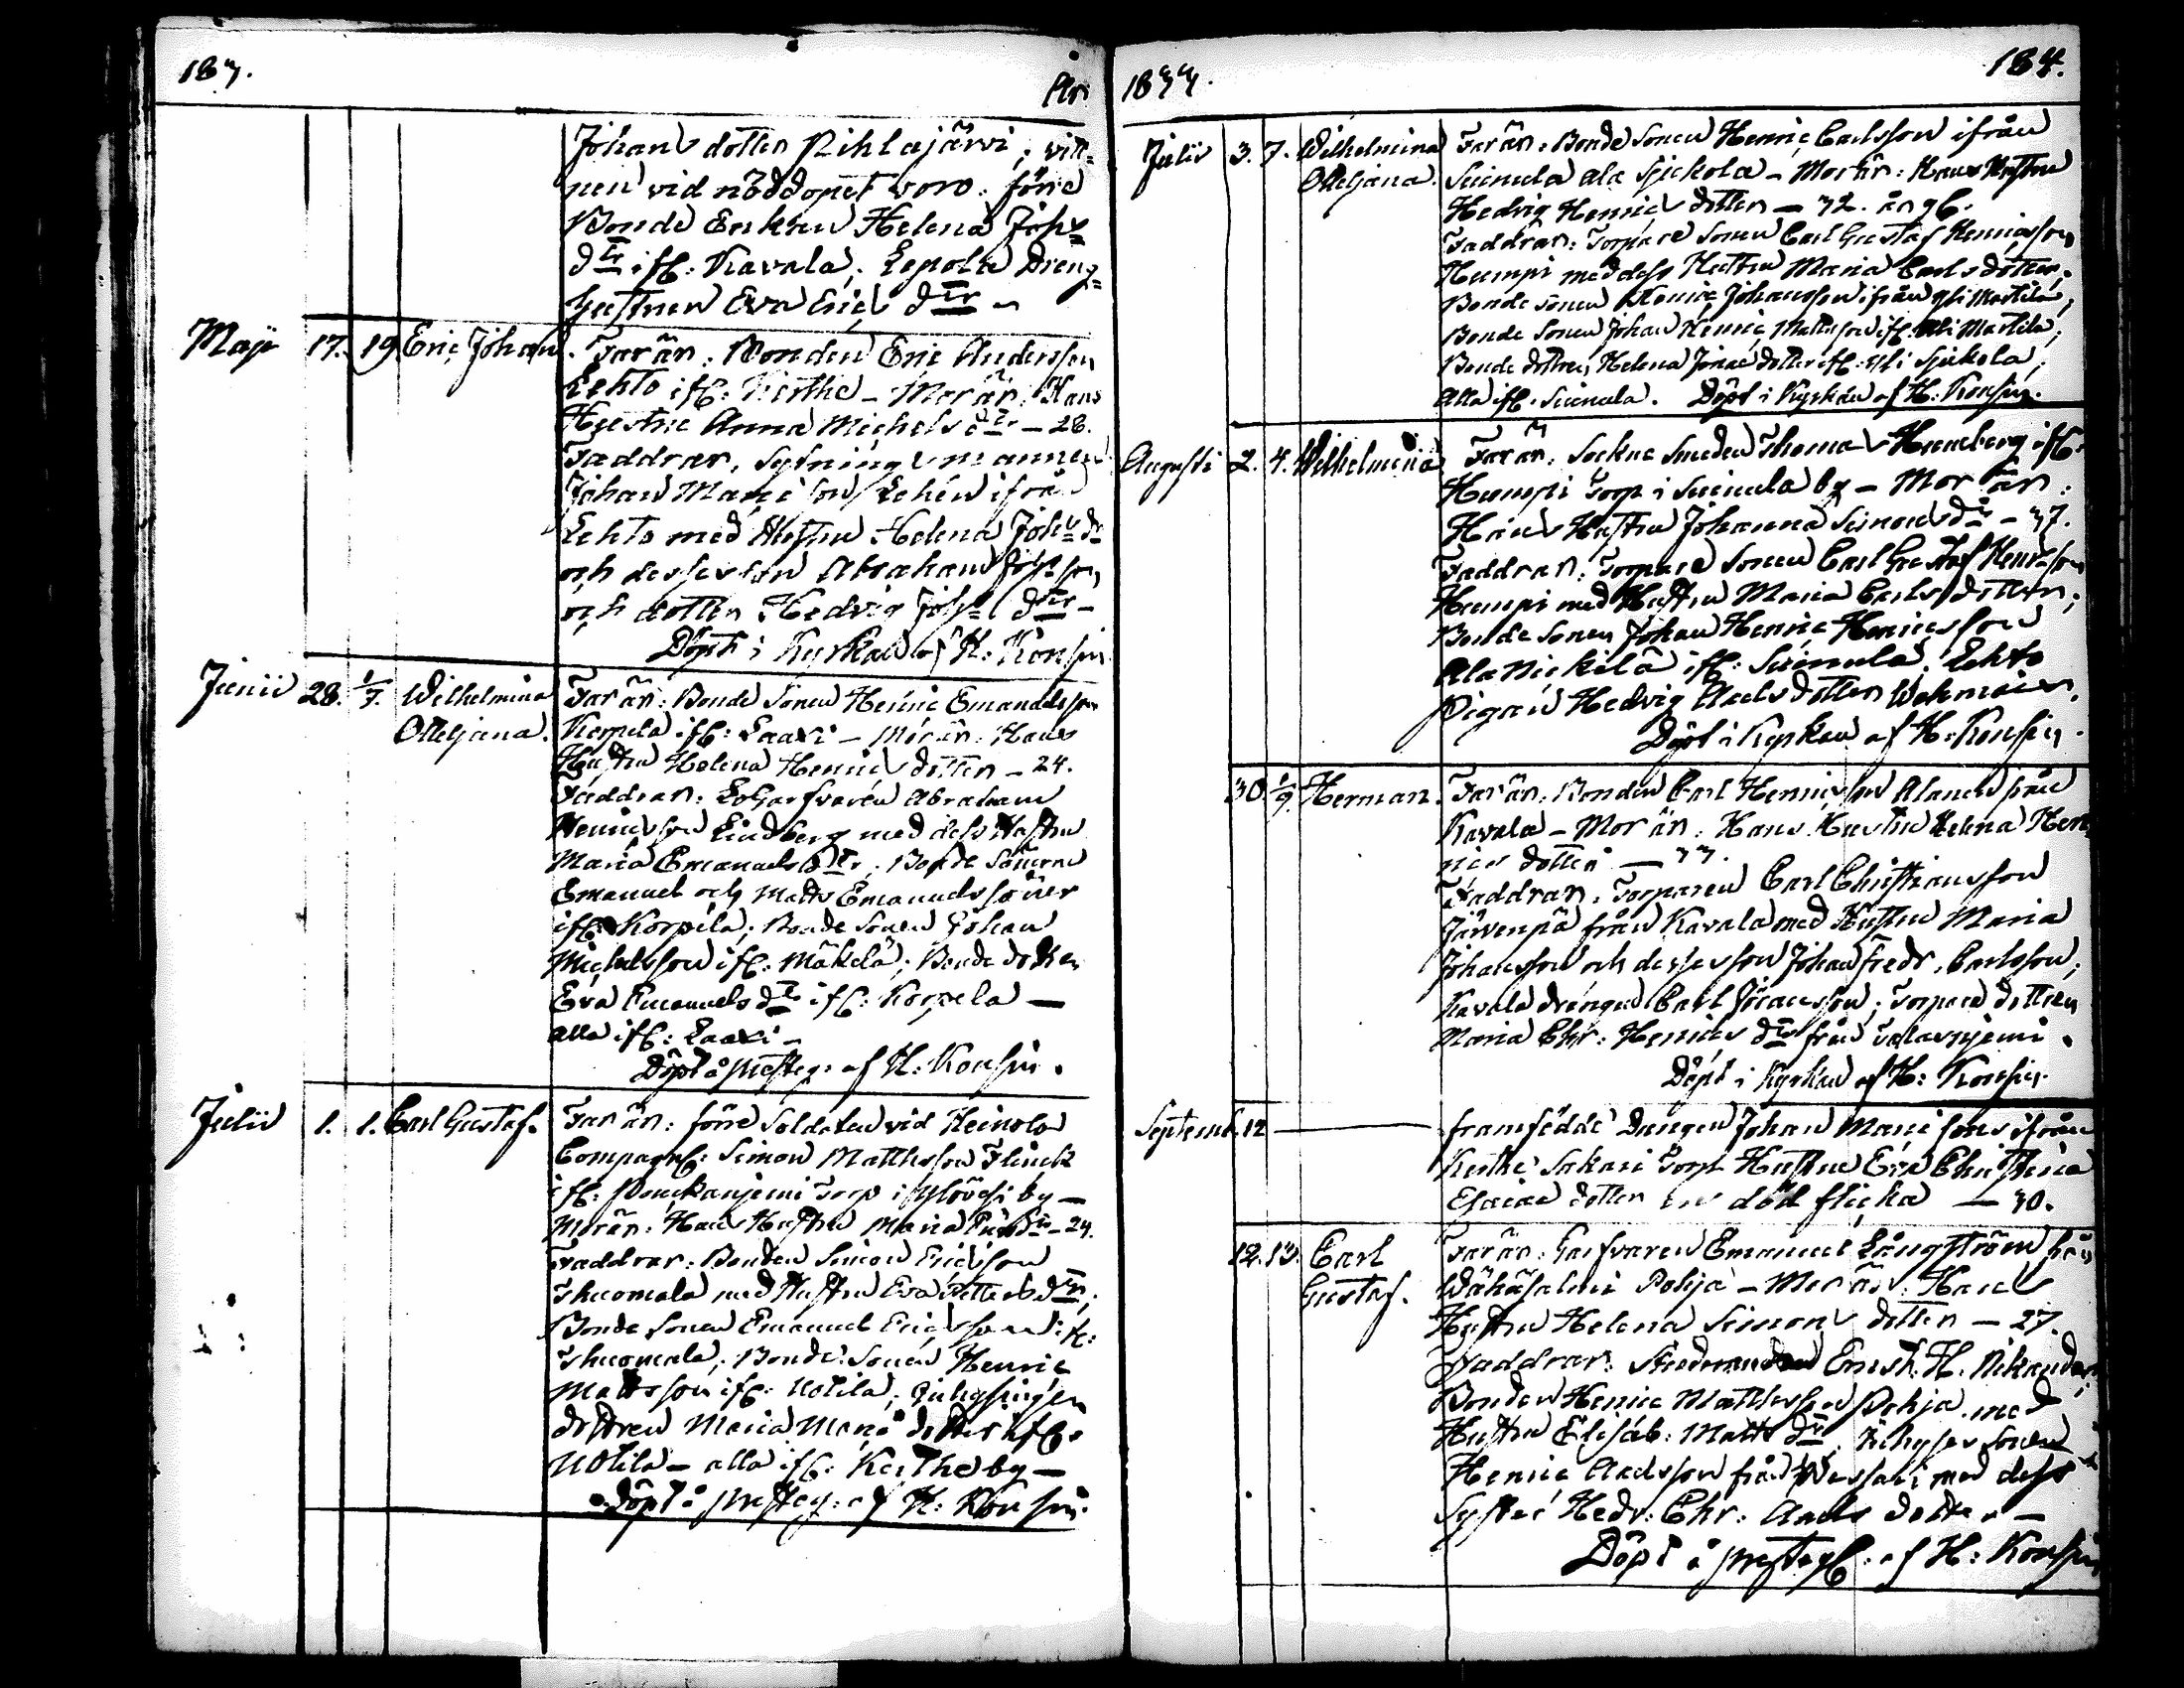 183.
År
Johans dotter Pihlajärvi; vitt=
nen vid nöddopet voro: förre
Bonde Enkan Helena Johs
dtr ifr: Kavala, Lepola Dreng=
hustrun Eva Erics dtr –
Maji 17. 19 Eric Johan. Far är: Bonden Eric Andersson
Lehto ifr: Kerthe – Mor är: Hans
Hustru Anna Michels dtr – 28.
Faddrar, Sytningsmannen
Johan Mari son Lehén ifrån
Lehto med Hustru Helena Johs dr
och desses son Abraham Johs son
och dotter Hedvig Johs dtr –
Döpt i Kyrkan af H: Konsin
Junii 28. 1/7. Wilhelmina Far är: Bonde Sonen Henric Emanuelsson
Ottiljana. Korpela ifr: Laaxi – Mor är: Hans
Hustru Helena Henrics dotter – 24.
Faddrar: Logarfvaren Abraham
Henricsson Lindberg med dess Hustru
Maria Emanuels dtr; Bonde Sönerne
Emanuel och Matts Emanuels söner
ifr: Korpela; Bonde Sonen Johan
Michelsson ifr: Mäkelä; Bonde dottren
Eva Emanuels dtr ifr: Korpela –
alla ifr: Laaxi –
Döpt å presteg: af H: Konsin.
Julii 1. 1. Carl Gustaf. Far är: förre Soldaten vid Heinola
Compagn: Simon Matthsson Flinck
ifr: Pouckanjemi Torp i Ylövesi by –
Mor är: Hans Hustru Maria dtr – 24.
Faddrar: Bonden Simon Ericsson
Thuomala med Hustru Eva Petters dtr;
Bonde Sonen Emanuel Ericsson ifr:
Thuomala; Bonde Sonen Henric
Mattsson ifr: Uotila;
dottren Maria dotter ifr:
Uotila – alla ifr: Kerthe by –
Döpt å presteg: af H: Konsin.
1833.
184.
Julii 3. 7. Wilhelmina Far är: Bonde Sonen Henric Carlsson ifrån
Ottiljana. Suinula Ala Sjukola – Mor är: Hans Hustru
Hedvig Henrics dotter – 32. år gl.
Faddrar: Torpare Sonen Carl Gustaf Henricsson
Humpi med dess Hustru Maria Carls dotter;
Bonde Sonen Henric Johansson ifrån Yli Martila,
Bonde Sonen Johan Henric Mattsson ifr: Ali Martila,
Bonde dottren Helena Johans dotter ifr: Yli Sjukola,
Alla ifr: Suinula. Döpt i Kyrkan af H: Konsin.
Augusti 2. 4. Wilhelmina Far är, Sockne Smeden Thomas Humberg ifr:
Humpi Torp i Suinula by – Mor är:
Hans Hustru Johanna Simons dtr – 37.
Faddrar: Torpare Sonen Carl Gustaf Henricsson
Humpi med Hustru Maria Carls dotter;
Bonde Sonen Johan Henric Henricsson
Ala Nickilä ifr: Suinula. Lehto
Pigan Hedvig Axels dotter
Döpt i Kyrkan af H: Konsin.
30. 1/9. Herman. Far är: Bonden Carl Henricsson Alanen från
Kavala – Mor är: Hans Hustru Helena Hen=
rics dotter – 33.
Faddrar, Torparen Carl Christiansson
Järvenpä från Kavala med Hustru Maria
Johansson och desses son Johan Fredr. Carlsson;
Kavala drängen Carl Göransson; Torpare dottren
Maria Chr: Henrics dtr från
Döpt i Kyrkan af H: Konsin.
Septemb. 12 framfödde Drängen Johan Mari sons ifrån
Kerthe Sakari Torp Hustru Eva Christina
Esaiae dotter en död flicka – 30.
12. 13. Carl Far är: Garfvaren Emanuel Långström från
Gustaf. Wähäsalmi Pohja – Mor är: Hans
Hustru Helena Simons dotter – 27.
Faddrar: Ernst H. Nikander;
Bonden Henric Matthsson Pohja med
Hustru Elisab: Matts dtr. sonen
Henric Axelsson från Wessari med dess
Syster Hedv: Chr: Axels dotter –
Döpt å prestegl: af H: Konsin